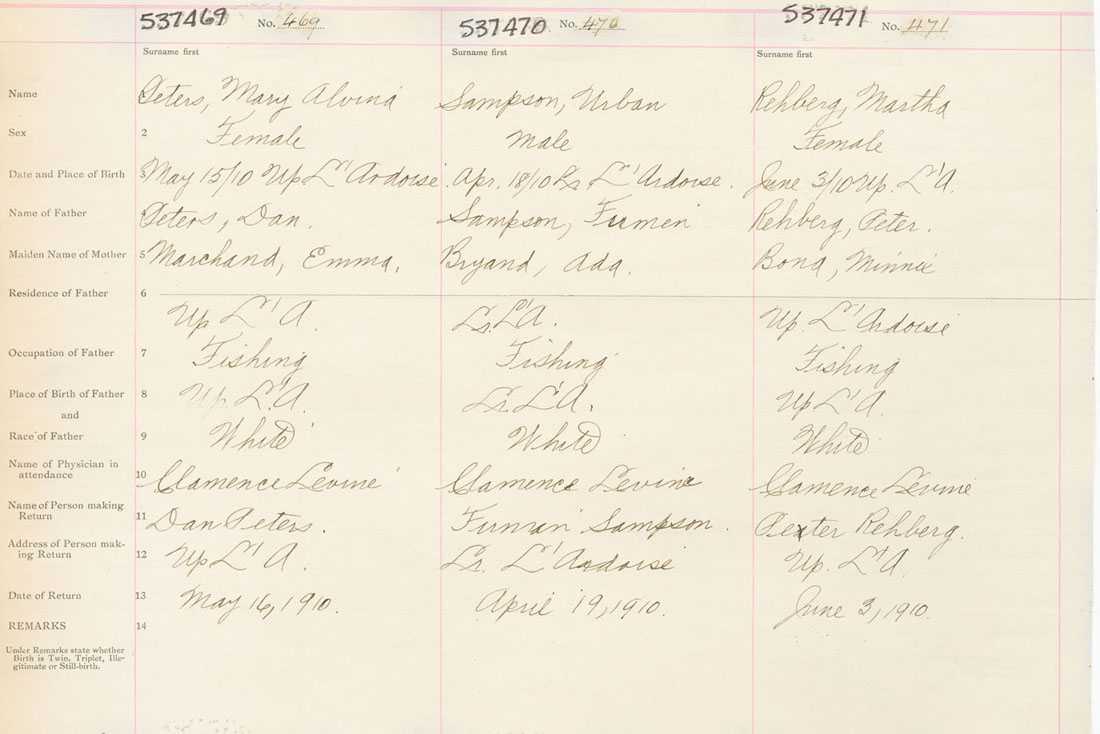 537469 No. 469 537470 No. 470 537471 No. 471
Surname first Surname first Surname first
Name 1 Peters, Mary Alvina Sampson, Urban Rehberg, Martha
Sex 2 Female Male Female
Date and Place of Birth 3 May 15/10 Up L'Ardoise. Apr. 18/10 Lr. L'Ardoise. June 3/10 Up. L'A.
Name of Father 4 Peters, Dan. Sampson, Firmin Rehberg, Peter.
Maiden Name of Mother 5 Marchand, Emma. Bryand, Ada. Bond, Minnie
Residence of Father 6
Up L'A. Lr. L'A. Up. L'Ardoise
Occupation of Father 7 Fishing Fishing Fishing
Place of Birth of Father 8 Up L'A. Lr. L'A. Up L'A.
and
Race of Father 9 White White White
Name of Physician in
attendance 10 Clamence Levine Clamence Levine Clamence Levine
Name of Person making
Return 11 Dan Peters. Firmin Sampson. Peter Rehberg.
Address of Person mak-
ing Return 12 Up L'A. Lr. L'Ardoise Up. L'A.
Date of Return 13 May 16, 1910. April 19, 1910. June 3, 1910.
REMARKS 14
Under Remarks state whether
Birth is Twin, Triplet, Ille-
gitimate or Still-birth.